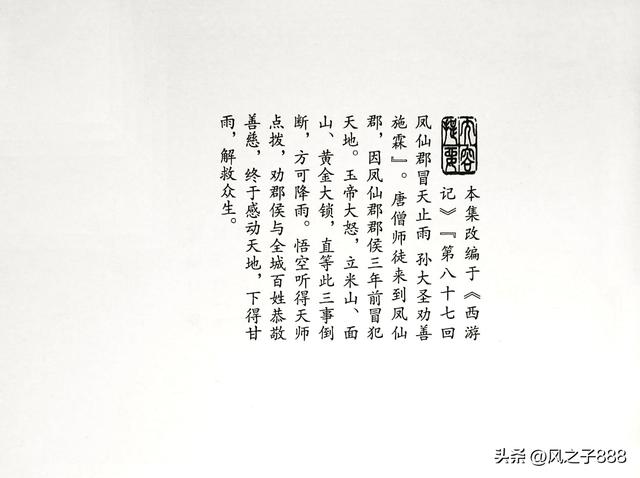 内容
提要
本集改编于《西游
记》『第八十七回
凤仙郡冒天止雨 孙大圣劝善
施霖』。唐僧师徒来到凤仙
郡，因凤仙郡郡侯三年前冒犯
天地。玉帝大怒，立米山、面
山、黄金大锁，直等此三事倒
断，方可降雨。悟空听得天师
点拨，劝郡侯与全城百姓恭敬
善慈，终于感动天地，下得甘
雨，解救众生。
头条 @风之子888